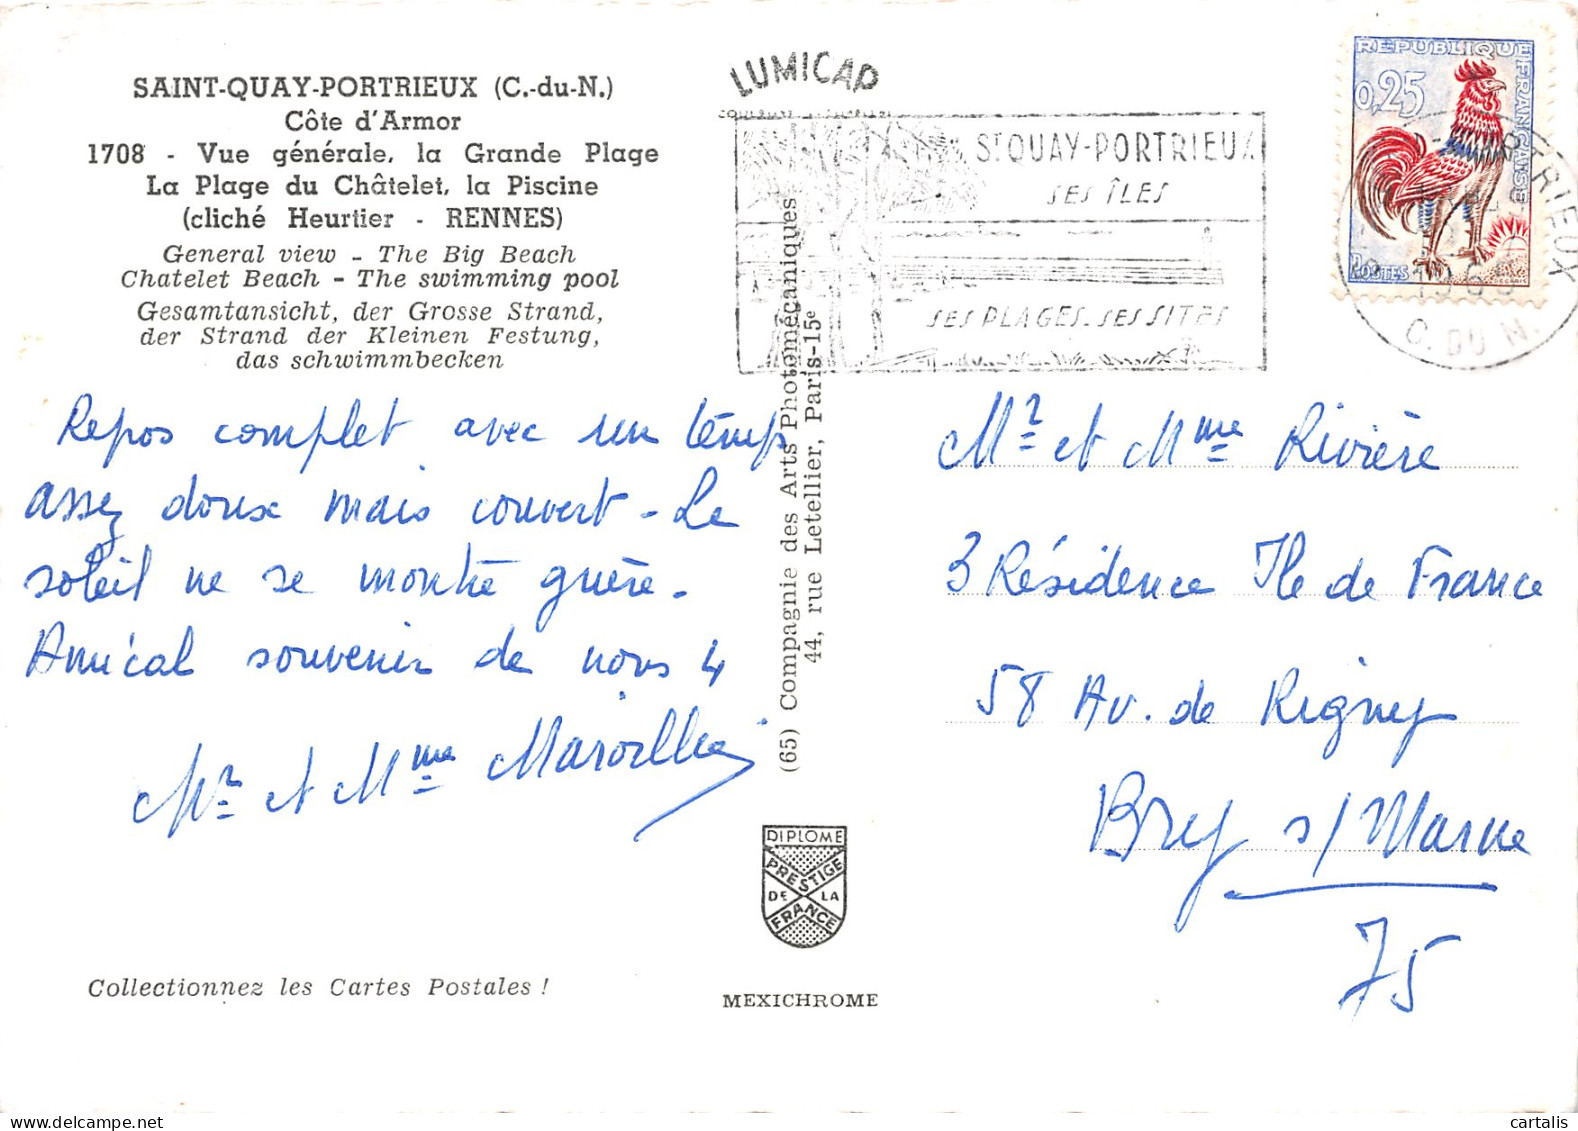 SAINT-QUAY-PORTRIEUX (C.-du-N.)
Côte d'Armor
1708 - Vue générale, la Grande Plage
La Plage du Châtelet, la Piscine
(cliché Heurtier - RENNES)
General view - The Big Beach
Chatelet Beach - The swimming pool
Gesamtansicht, der Grosse Strand,
der Strand der Kleinen Festung,
das schwimmbecken
Repos complet avec un temps
assez doux mais couvert - Le
soleil ne se montre guère.
Amical souvenir de nous 4
Mr et Mme
Collectionnez les Cartes Postales !
LUMICAP
St QUAY-PORTRIEUX
SES ÎLES
SES PLAGES. SES SITES
(65) Compagnie des Arts Photomécaniques
44, rue Letellier, Paris-15e
DIPLOME
PRESTIGE
DE LA
FRANCE
MEXICHROME
REPUBLIQUE FRANÇAISE
0,25
POSTES
C. DU N.
Mr et Mme Rivière
3 Résidence Ile de France
58 Av. de Rigny
Bry s/Marne
75
cartalis